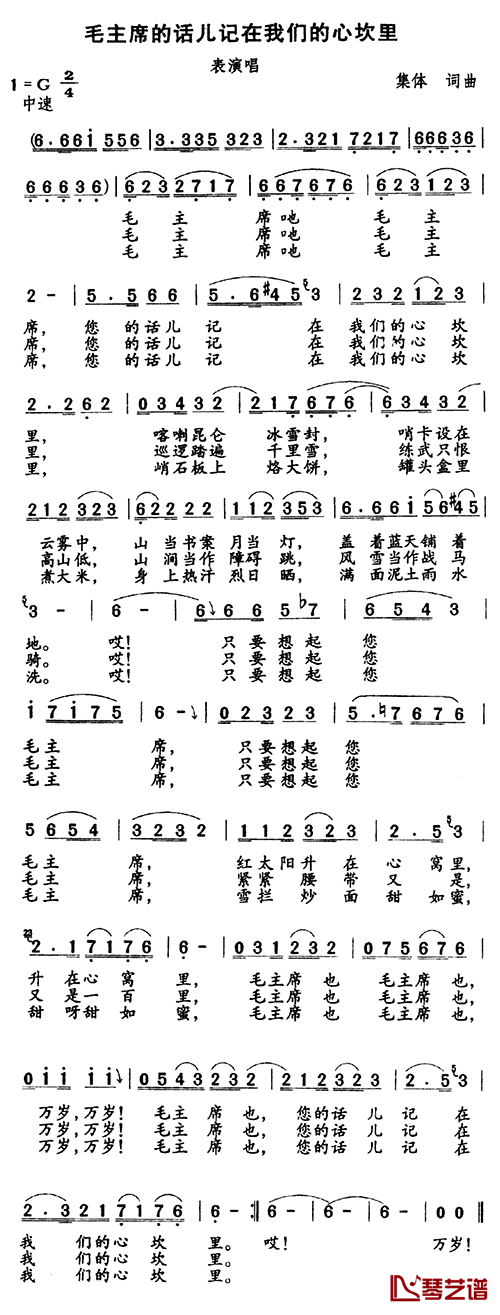 毛主席的话儿记在我们的心坎里
表演唱
1=G 2/4
中速
集体 词曲
(6.66i 556 | 3.335 323 | 2.321 7217 | 66636 |
66636) | 6232717 | 667676 | 623123 |
毛主席吔毛主
毛主席吔毛主
毛主席吔毛主
2 - | 5.566 | 5.6#45 3 | 232123 |
席，您的话儿记在我们的心坎
席，您的话儿记在我们的心坎
席，您的话儿记在我们的心坎
2.262 | 03432 | 217676 | 63432 |
里，喀喇昆仑冰雪封，哨卡设在
里，巡逻踏遍千里雪，练武只恨
里，峭石板上烙大饼，罐头盒里
212323 | 62222 | 112353 | 6.66i56#45 |
云雾中，山当书案月当灯，盖着蓝天铺着
高山低，山涧当作障碍跳，风雪当作战马
煮大米，身上热汗烈日晒，满面泥土雨水
3 - | 6 - | 6 665b7 | 6543 |
地。哎！只要想起您
骑。哎！只要想起您
洗。哎！只要想起您
i7i75 | 6 - | 02323 | 5.♮7676 |
毛主席，只要想起您
毛主席，只要想起您
毛主席，只要想起您
5654 | 3232 | 112323 | 2.5 3 |
毛主席，红太阳升在心窝里，
毛主席，紧紧腰带又是，
毛主席，雪拦炒面甜如蜜，
2.17176 | 6 - | 031232 | 075676 |
升在心窝里，毛主席也毛主席也
又是一百里，毛主席也毛主席也
甜呀甜如蜜，毛主席也毛主席也，
0ii ii | 0543232 | 212323 | 2.5 3 |
万岁，万岁！毛主席也，您的话儿记在
万岁，万岁！毛主席也，您的话儿记在
万岁，万岁！毛主席也，您的话儿记在
2.3217176 | 6 - :‖ 6 - | 6 - | 00 ‖
我们的心坎里。哎！万岁！
我们的心坎里。
我们的心坎里。
琴艺谱